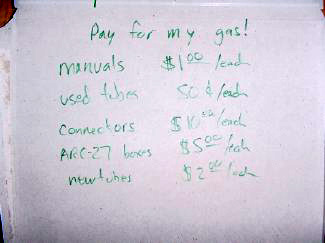 Pay for my gas!
manuals $1.00 /each
used tubes 50¢/each
connectors $10.00/each
ARC-27 boxes $5.00/each
new tubes $2.00/each